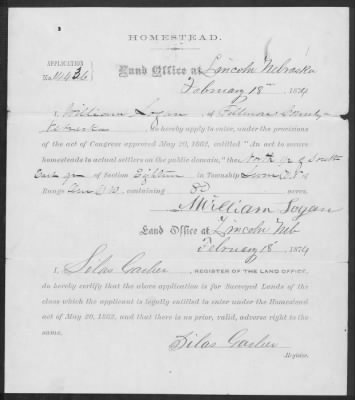 HOMESTEAD.
APPLICATION
No. 4436
Land Office at Lincoln Nebraska
February 18th 1874
I, William Logan of Fillmore County
Nebraska do hereby apply to enter, under the provisions
of the act of Congress approved May 20, 1862, entitled "An act to secure
homesteads to actual settlers on the public domain," the North ½ of South
East qr of Section Eighteen in Township
Range containing 80 acres.
William Logan
Land Office at Lincoln Neb
February 18 1874
I, Silas Garber, REGISTER OF THE LAND OFFICE,
do hereby certify that the above application is for Surveyed Lands of the
class which the applicant is legally entitled to enter under the Homestead
act of May 20, 1862, and that there is no prior, valid, adverse right to the
same.
Silas Garber
Register.